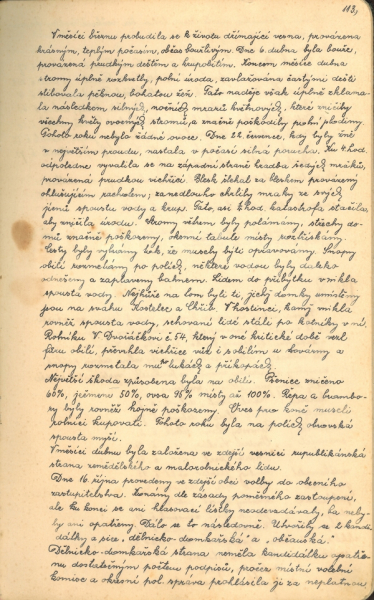 113.
V měsíci březnu probudila se k životu dřímající vesna, provázena
krásným, teplým počasím, občas bouřlivým. Dne 6. dubna byla bouře,
provázená prudkým deštěm a krupobitím. Koncem měsíce dubna
stromy úplně rozkvetly, polní úroda, zavlažována častými dešti
slibovala pěknou, bohatou žeň. Tato naděje však úplně zklama-
la následkem silných, nočních mrazů květnových, které zničily
všechny květy ovocných stromů, a značně poškodily polní plodiny.
Tohoto roku nebylo žádné ovoce. Dne 22. července, kdy byly žně
v největším proudu, nastala v počasí silná porucha. Ku 4. hod.
odpoledne vyvalila se na západní straně hradba šedých mraků,
provázená prudkou vichřicí. Blesk stíhal za bleskem provázený
ohlušujícím rachotem; zanedlouho chrlily mraky ze svých
jícnů spousty vody a krup. Tato asi ½ hod. katastrofa stačila,
aby zničila úrodu. Stromy větrem byly polámány, střechy do-
mů značně poškozeny, okenní tabule místy roztřískány.
Cesty byly vybrány tak, že musely býti opravovány. Snopy
obilí rozmetány po polích, některé vodou byly daleko
odneseny a zaplaveny bahnem. Lidem do příbytků vnikla
spousta vody. Nejhůře na tom byli ti, jichž domky umístěny
jsou na svahu Kostelec a Chlib. V hostinci, kamž vnikla
rovněž spousta vody, schovaní lidé stáli po kotníky v ní.
Rolníku V. Dvořáčkovi č. 54, který v oné kritické době vezl
fůru obilí, převrhla vichřice vůz i s obilím u továrny a
snopy rozmetala mu po lukách a příkopách.
Největší škoda způsobena byla na obilí. Pšenice zničeno
60%, ječmene 50%, ovsa 95% místy až 100%. Řepa a brambo-
ry byly rovněž hojně poškozeny. Oves pro koně museli
rolníci kupovati. Tohoto roku byla na polích obrovská
spousta myší.
V měsíci dubnu byla založena ve zdejší vesnici republikánská
strana zemědělského a malorolnického lidu.
Dne 16. října provedeny ve zdejší obci volby do obecního
zastupitelstva. Konány dle zásady poměrného zastoupení,
ale ku konci se ani hlasovací lístky neodevzdávaly, ba neby-
ly ani opatřeny. Dálo se to následovně. Utvořily se 2 kandi-
dátky a sice „dělnicko-domkářská" a „občanská".
Dělnicko-domkářská strana neměla kandidátku opatře-
nu dostatečným počtem podpisů, pročež místní volební
komise a okresní pol. správa prohlásila ji za neplatnou